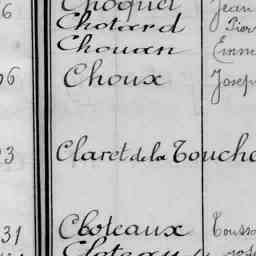 6 Choquet Jean
Chotard Pier
Chouan Emm
06 Choux Josep
03 Claret de la Touche
31 Cloteaux Touss